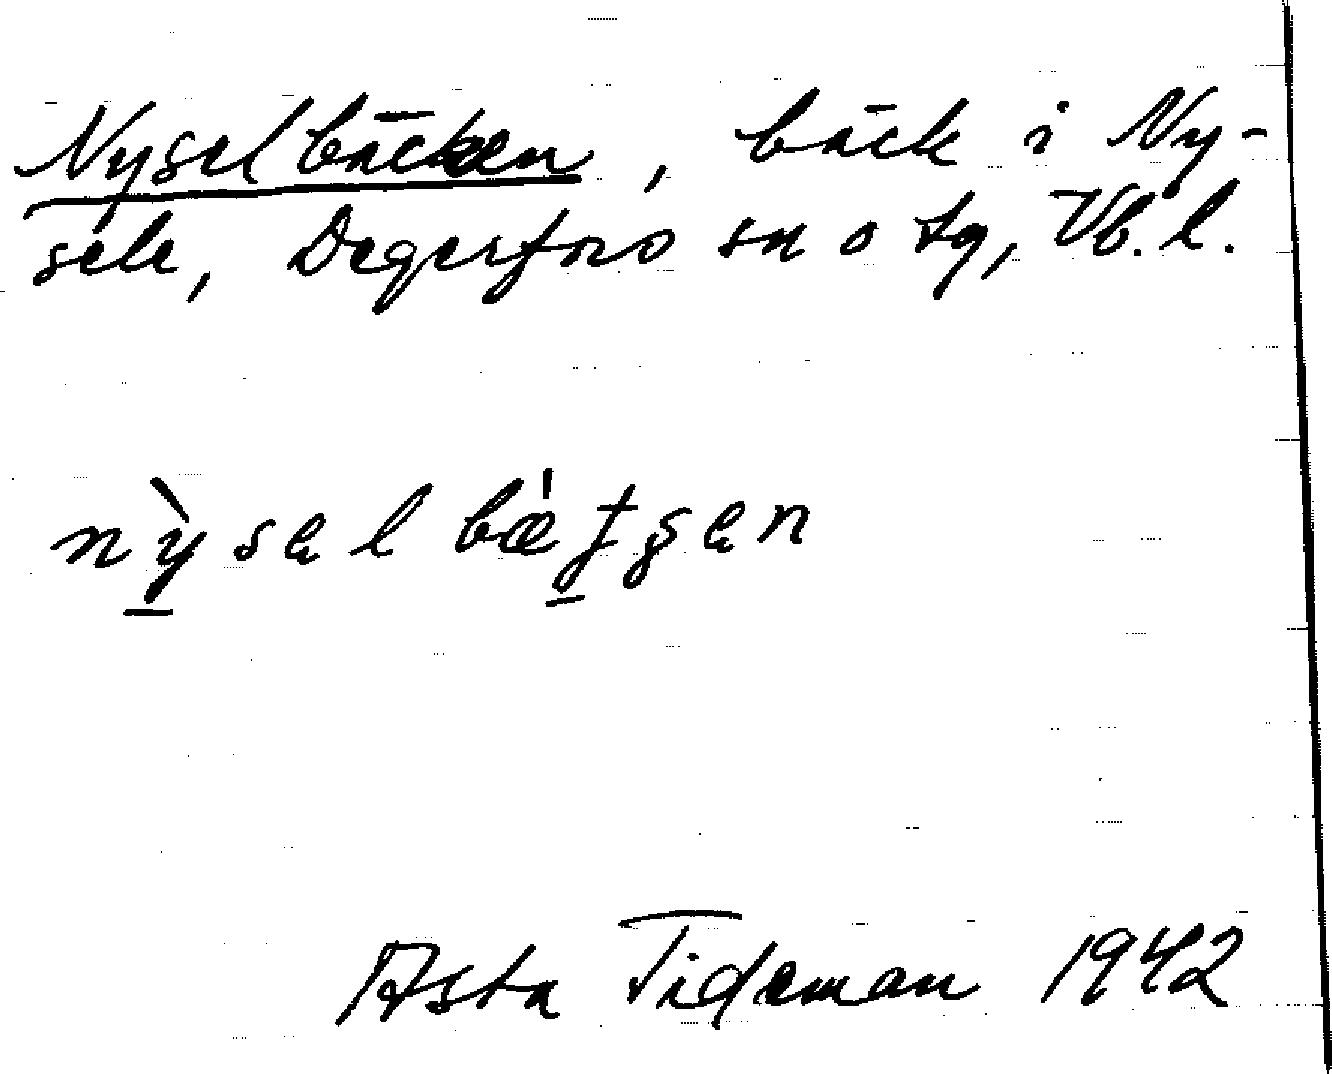 Nyselbäcken, bäck i Ny-
sele, Degerfors sn o tg, Vb.l.
nỳselbæ̀tʂen
Asta Tideman 1942